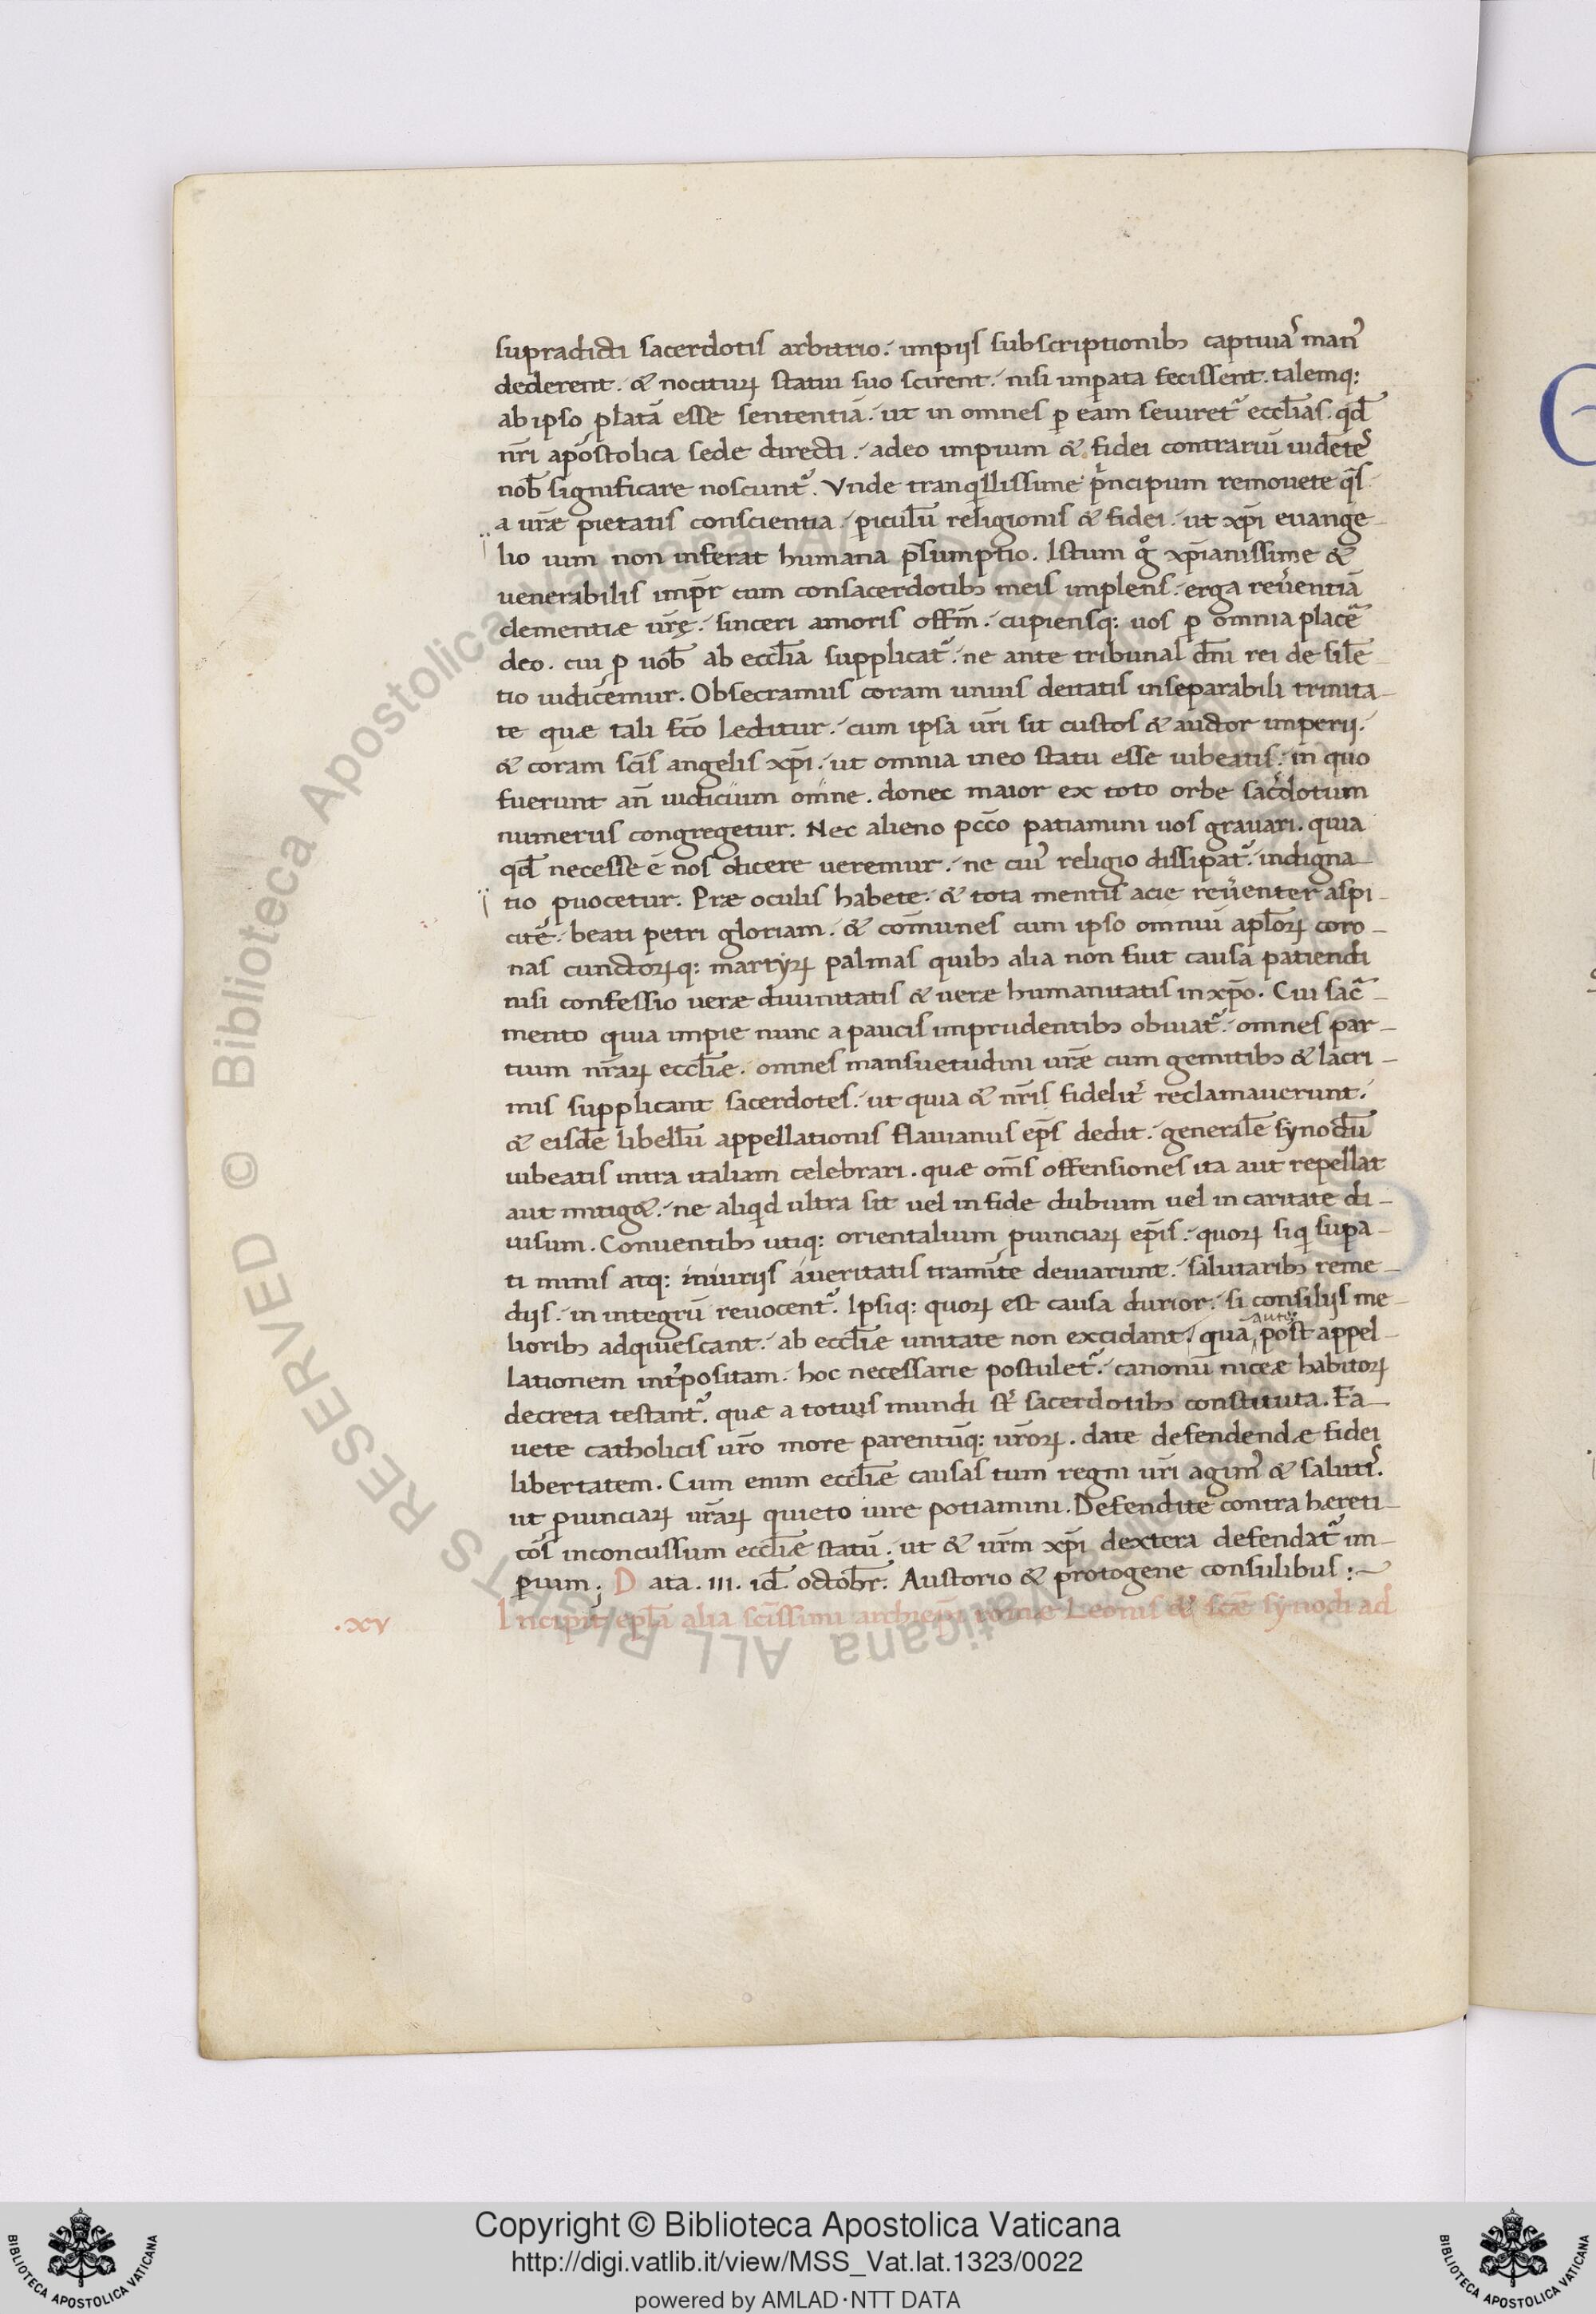 supradicti sacerdotis arbitrio. impiis subscriptionibꝫ captiuaˢ man᾽
dederent. & nocituꝝ statui suo scirent. nisi imꝑata fecissent. talemq:
ab ipso ꝓlatā esse sententiā. ut in omnes ꝑ eam seuiret᾽ eccl̄ias. qd̄
nr̄i apostolica sede directi. adeo impium & fidei contrariū uidete᾽
nob̄ significare noscunt᾽. Vnde tranqillissime pͥncipum remouete qs̄
a ur̄æ pietatis conscientia. ꝑiculū religionis & fidei. ut xp̄i euange-
lio uim non inferat humana p̄sumptio. Istum gͦ xp̄ianissime &
uenerabilis imp̄r cum consacerdotibꝫ meis implens. erga reuͤentiā
clementiæ ur̄ę. sinceri amoris offm̄. cupiensq: uos ꝑ omnia placē
deo. cui ꝑ uob̄ ab eccl̄ia supplicat᾽. ne ante tribunal dn̄i rei de silē-
tio iudicemur. Obsecramus coram unius deitatis inseparabili trinita-
te quæ tali fc̄o leditur. cum ipsa ur̄i sit custos & auctor imperii.
& coram sc̄is angelis xp̄i. ut omnia ineo statu esse iubeatis. in quo
fuerunt an̄ iudicium omne. donec maior ex toto orbe sac᾽dotum
numerus congregetur. Nec alieno pcc̄o patiamini uos grauari. quia
qd̄ necesse ē nos dicere ueremur. ne cui᾽ religio dissipat᾽. indigna-
tio ꝓuocetur. Præ oculis habete. & tota mentis acie reuͤenter aspi-
cite. beati petri gloriam. & com̄unes cum ipso omniū apl̄oꝝ coro-
nas cunctoꝝq: martyꝝ palmas quibꝫ alia non fuit causa patiendi
nisi confessio ueræ diuinitatis & ueræ humanitatis in xp̄o. Cui sac̄-
mento quia impie nunc a paucis imprudentibꝫ obuiat᾽. omnes par-
tium nr̄aꝝ eccl̄iæ. omnes mansuetudini ur̄æ cum gemitibꝫ & lacri-
mis supplicant sacerdotes. ut quia & nr̄is fidelit᾽ reclamauerunt.
& eisdē libellū appellationis flauianus ep̄s dedit. generalē synodū
iubeatis intra italiam celebrari. quæ om̄s offensiones ita aut repellat
aut mitig&. ne aliqid ultra sit uel in fide dubium uel in caritate di-
uisum. Conuentibꝫ utiq: orientalium ꝓuinciaꝝ ep̄is. quoꝝ siqi supa-
ti minis atq: iniuriis aueritatis tramite deuiarunt. salutaribꝫ reme-
diis. in integrū reuocent᾽. Ipsiq: quoꝝ est causa durior. si consiliis me-
lioribꝫ adquiescant. ab eccl̄iæ unitate non excidant. quā autē post appel-
lationem int᾽positam. hoc necessarie postulet᾽. canonū niceæ habitoꝝ
decreta testant᾽. quæ a totius mundi st᾽ sacerdotibꝫ constituta. Fa-
uete catholicis ur̄o more parentūq: ur̄oꝝ. date defendendæ fidei
libertatem. Cum enim eccl̄iæ causas tum regni ur̄i agim᾽ & saluti᾽.
ut ꝓuinciaꝝ ur̄aꝝ quieto iure potiamini. Defendite contra hæreti-
cos inconcussum eccl̄iæ statū. ut & ur̄m xp̄i dextera defendat᾽ im-
ꝑium; Data. III. id̄. octob̄r. Austorio & protogene consulibus:~
.xv Incipit epl̄a alia sc̄issimi archiep̄i romæ Leonis & sc̄æ synodi ad
© Biblioteca Apostolica Vaticana ALL RIGHTS RESERVED
Copyright © Biblioteca Apostolica Vaticana
http://digi.vatlib.it/view/MSS_Vat.lat.1323/0022
powered by AMLAD·NTT DATA
BIBLIOTECA APOSTOLICA VATICANA
BIBLIOTECA APOSTOLICA VATICANA